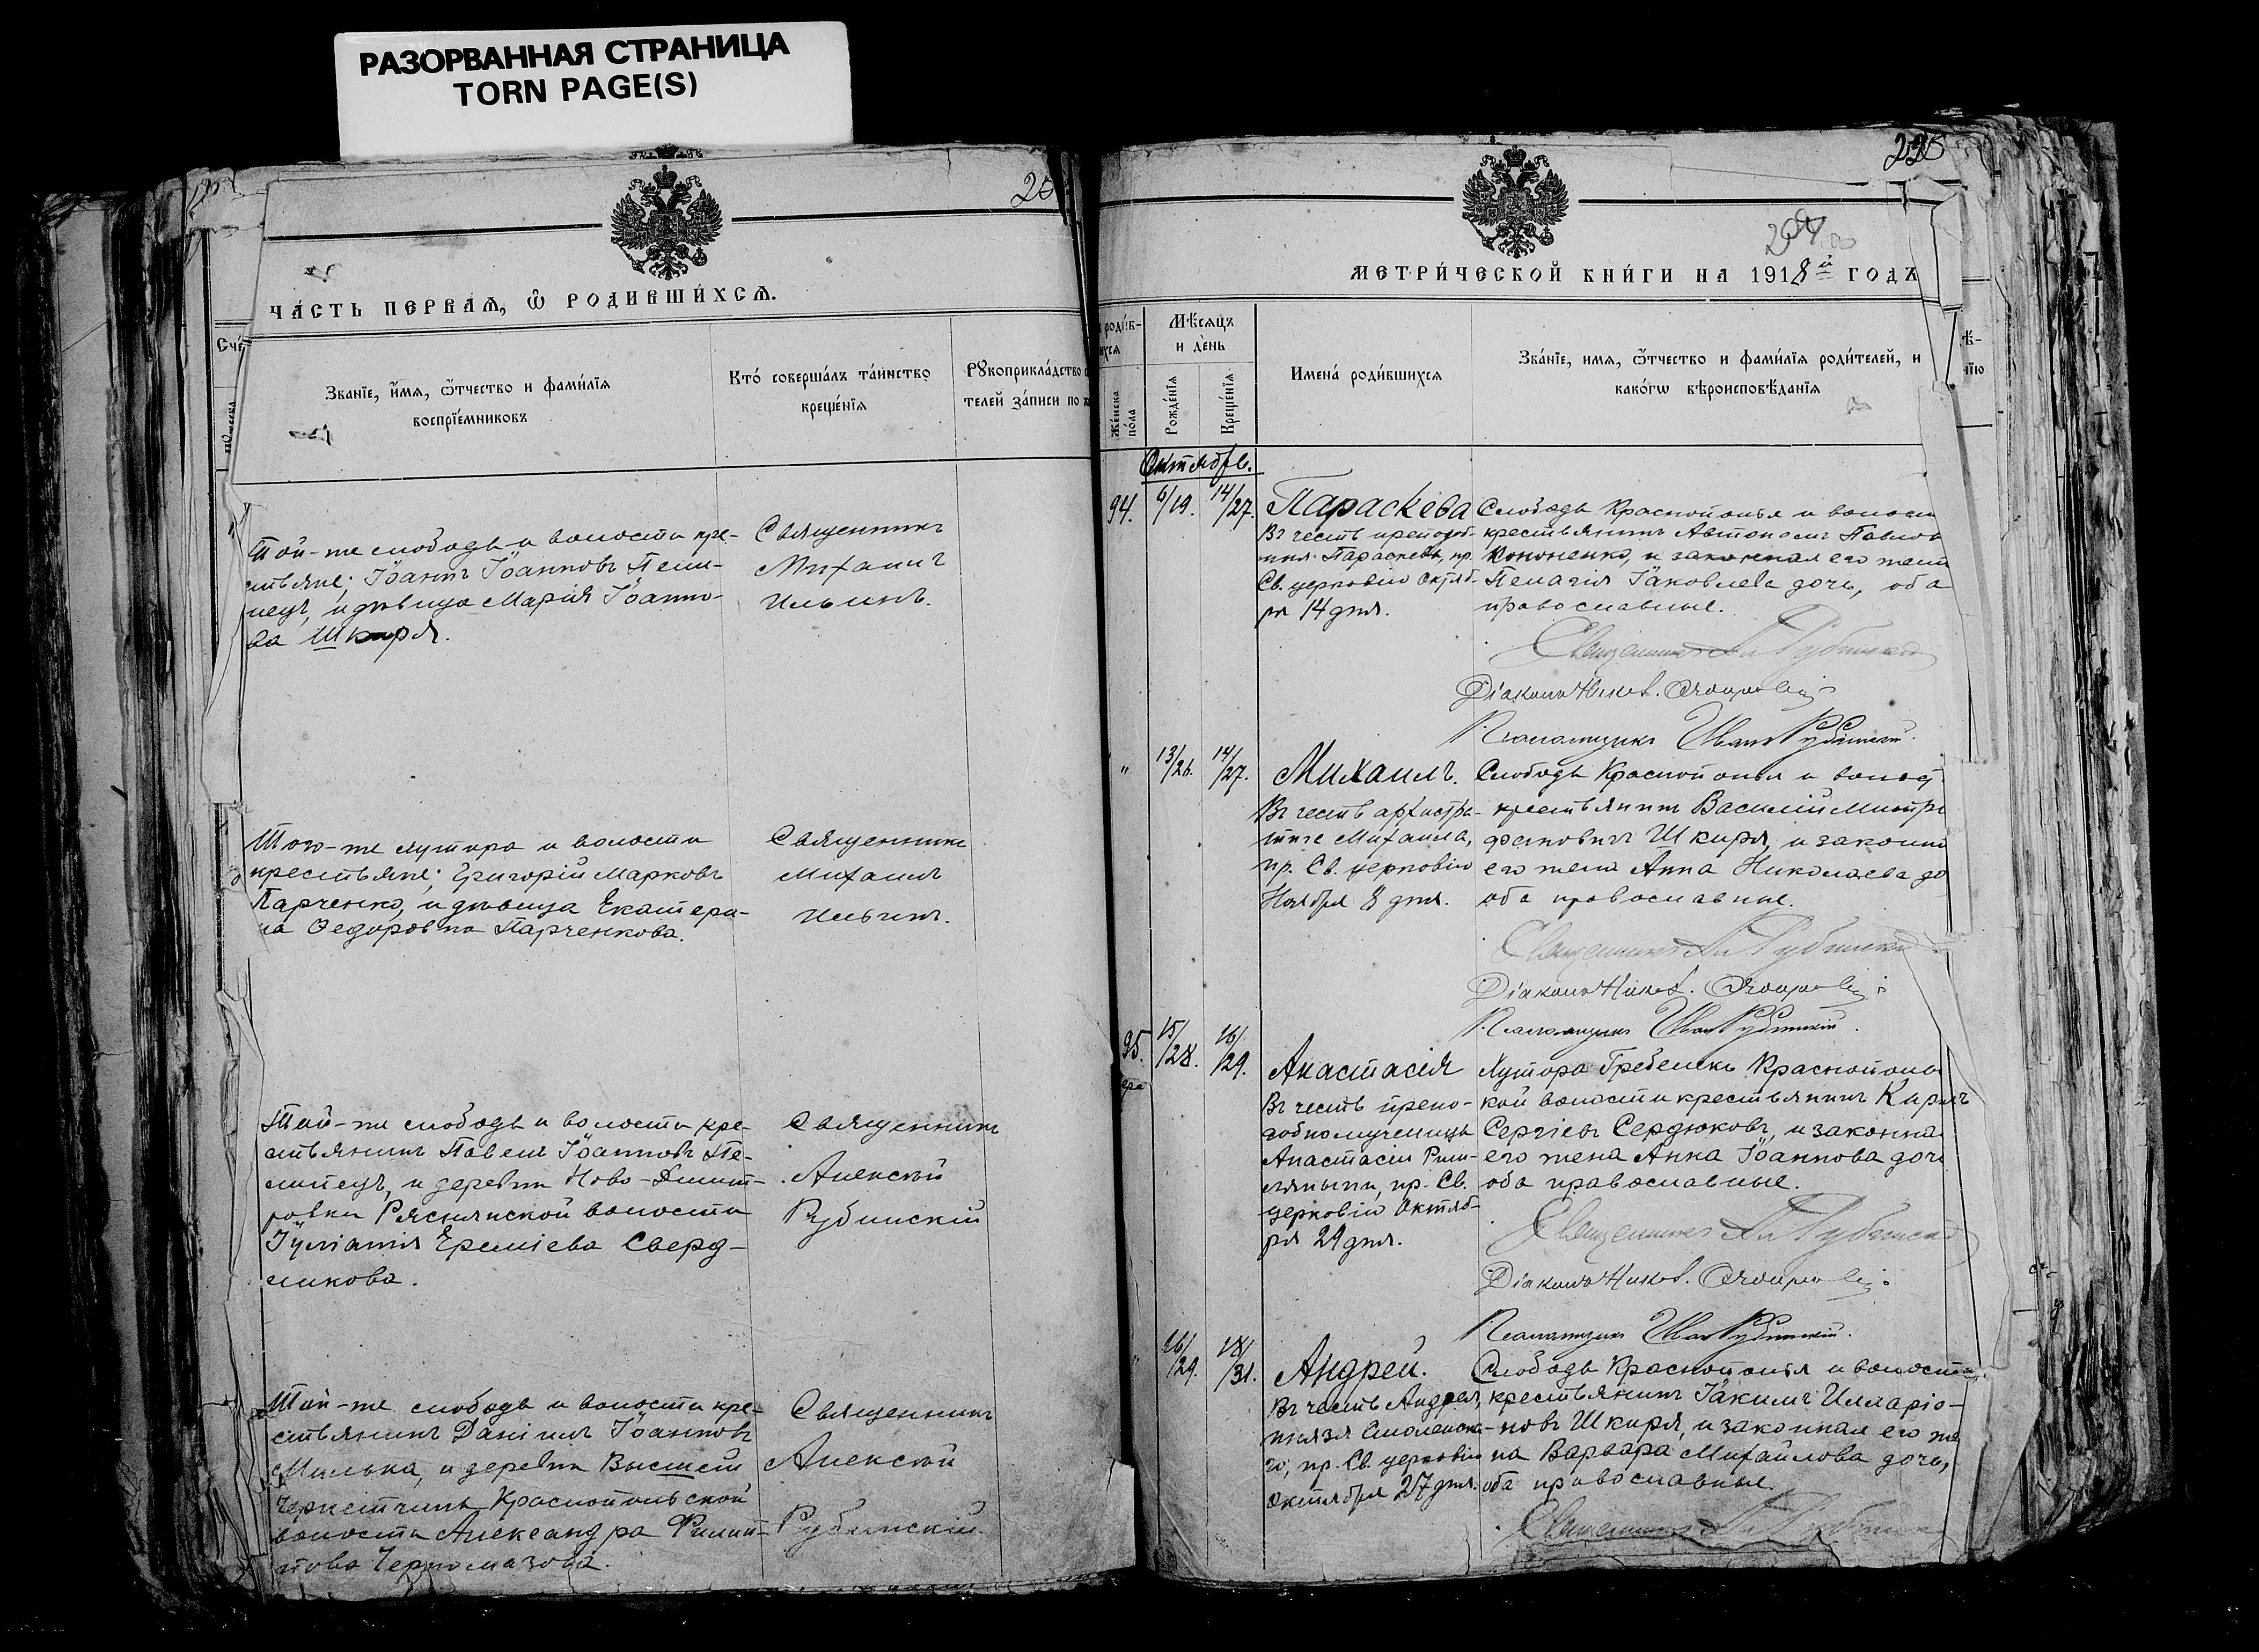 РАЗОРВАННАЯ СТРАНИЦА
TORN PAGE(S)
20
ЧА́СТЬ ПЕРВАѦ, Ѽ РОДИВШИ́ХСѦ.
Счё
Зва́нїе, и҆́мѧ, ѻ҆́тчество и фами́лїѧ
воспрїе́мниковъ
Кто̀ соверша́лъ та́инство
креще́нїѧ
Рꙋкоприкла́дство
телей за́писи по
Той-же слободы и волости кре-
стьяне; Іоаннъ Іоанновъ Пели-
пецъ, и девица Марія Іоанно-
ва Шкиря.
Священникъ
Михаилъ
Ильинъ.
Того-же хутора и волости
крестьяне; Григорій Марковъ
Парченко, и девица Екатери-
на Ѳедоровна Парченкова.
Священникъ
Михаилъ
Ильинъ.
Той-же слободы и волости кре-
стьянинъ Павелъ Іоанновъ Пе-
липецъ, и деревни Ново-Дмит-
ровки Ряснянской волости
Іуліанія Ереміева Сверд-
ликова.
Священникъ
Алексѣй
Рубинскій
Той-же слободы и волости кре-
стьянинъ Даніилъ Іоанновъ
Милька, и деревни Высшей
Чернетчины Краснопольской
волости Александра Филип-
пова Черномазова.
Священникъ
Алексѣй
Рубинскій
220
204
МЕТРИ́ЧЕСКОЙ КНИ́ГИ НА 1918й ГОДЪ
роди́в-
ихсѧ
Же́нска
по́ла
Мѣ́сѧцъ
и де́нь
Рожде́нїѧ
Креще́нїѧ
Имена̀ роди́вшихсѧ
Зва́нїе, имѧ, ѻ҆́тчество и фами́лїѧ роди́телей, и
како́гѡ вѣроисповѣ́данїѧ
Октябрь.
94. 6/19. 14/27. Параскева
Въ честь преподоб-
ныя Параскевы, пр.
Св. церковію октяб-
ря 14 дня.
Слободы Краснополья и волости
крестьянинъ Автономъ Павлов
Кононенко, и законная его жена
Пелагія Іаковлева дочь, оба
православные.
Священникъ Ал Рубинскій
Діаконъ Никол.
Псаломщикъ Иван Рубинскій.
" 13/26. 14/27. Михаилъ.
Въ честь архистра-
тига Михаила,
пр. Св. церковію
Ноября 8 дня.
Слободы Краснополья и волост
крестьянинъ Василій Митро
фановичъ Шкиря, и законн
его жена Анна Николаева до
оба православные.
Священникъ Ал Рубинскій
Діаконъ Никол.
Псаломщикъ Иван Рубинскій.
95. 15/28. 16/29. Анастасія
Въ честь препо-
добномученицы
Анастасіи Рим-
ляныни, пр. Св.
церковію Октяб-
ря 29 дня.
Хутора Гребелекъ Краснополь
кой волости крестьянинъ Кирилъ
Сергіевъ Сердюковъ, и законна
его жена Анна Іоаннова дочь
оба православные.
Священникъ Ал Рубинскій
Діаконъ Никол.
Псаломщикъ Иван Рубинскій.
" 16/29. 18/31. Андрей.
Въ честь Андрея,
князя Смоленска-
го, пр. Св. церковію
Октября 27 дня.
Слободы Краснополья и волости
крестьянинъ Іакимъ Илларіо-
новъ Шкиря, и законная его же
на Варвара Михайлова дочь,
оба православные.
Священникъ Ал Рубинск